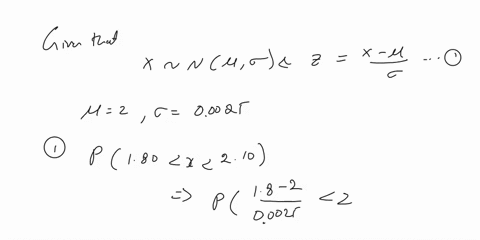 Given that
x ~ N(μ,σ) & z = x-μ/σ ... ①
μ=2, σ= 0.0025
① P(1.80 < x < 2.10)
⇒ P( 1.8-2/0.0025 < z